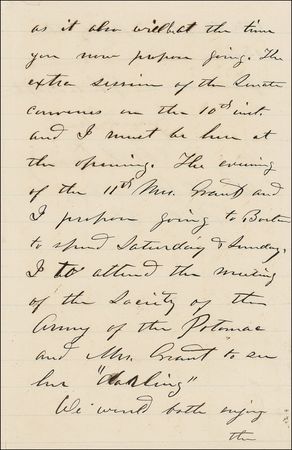 as it also will at the time
you now propose going. The
extra session of the Senate
convenes on the 10th inst.
and I must be here at
the opening. The evening
of the 11th Mrs. Grant and
I propose going to Boston
to spend Saturday & Sunday,
I to attend the meeting
of the Society of the
Army of the Potomac
and Mrs. Grant to see
her "darling"
We would both enjoy
the